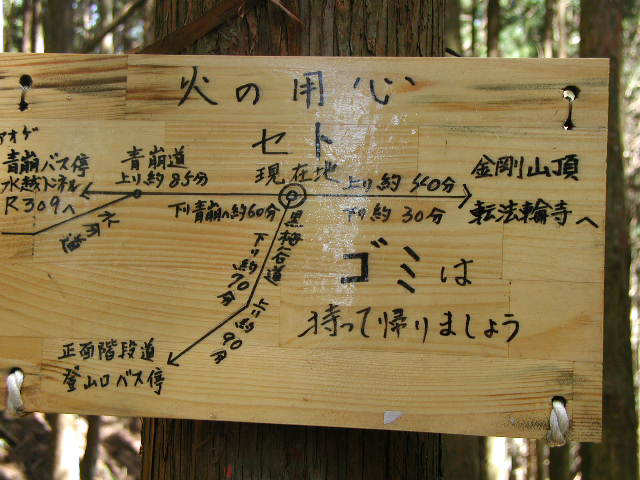 火の用心
セト
現在地
アオゲ
青崩バス停
水越トンネル
R309へ
青崩道
上り約85分
下り青崩へ約60分
上り約40分
下り約30分
金剛山頂
転法輪寺へ
黒栂谷道
下り約70分
上り約90分
正面階段道
登山口バス停
ゴミは
持って帰りましょう